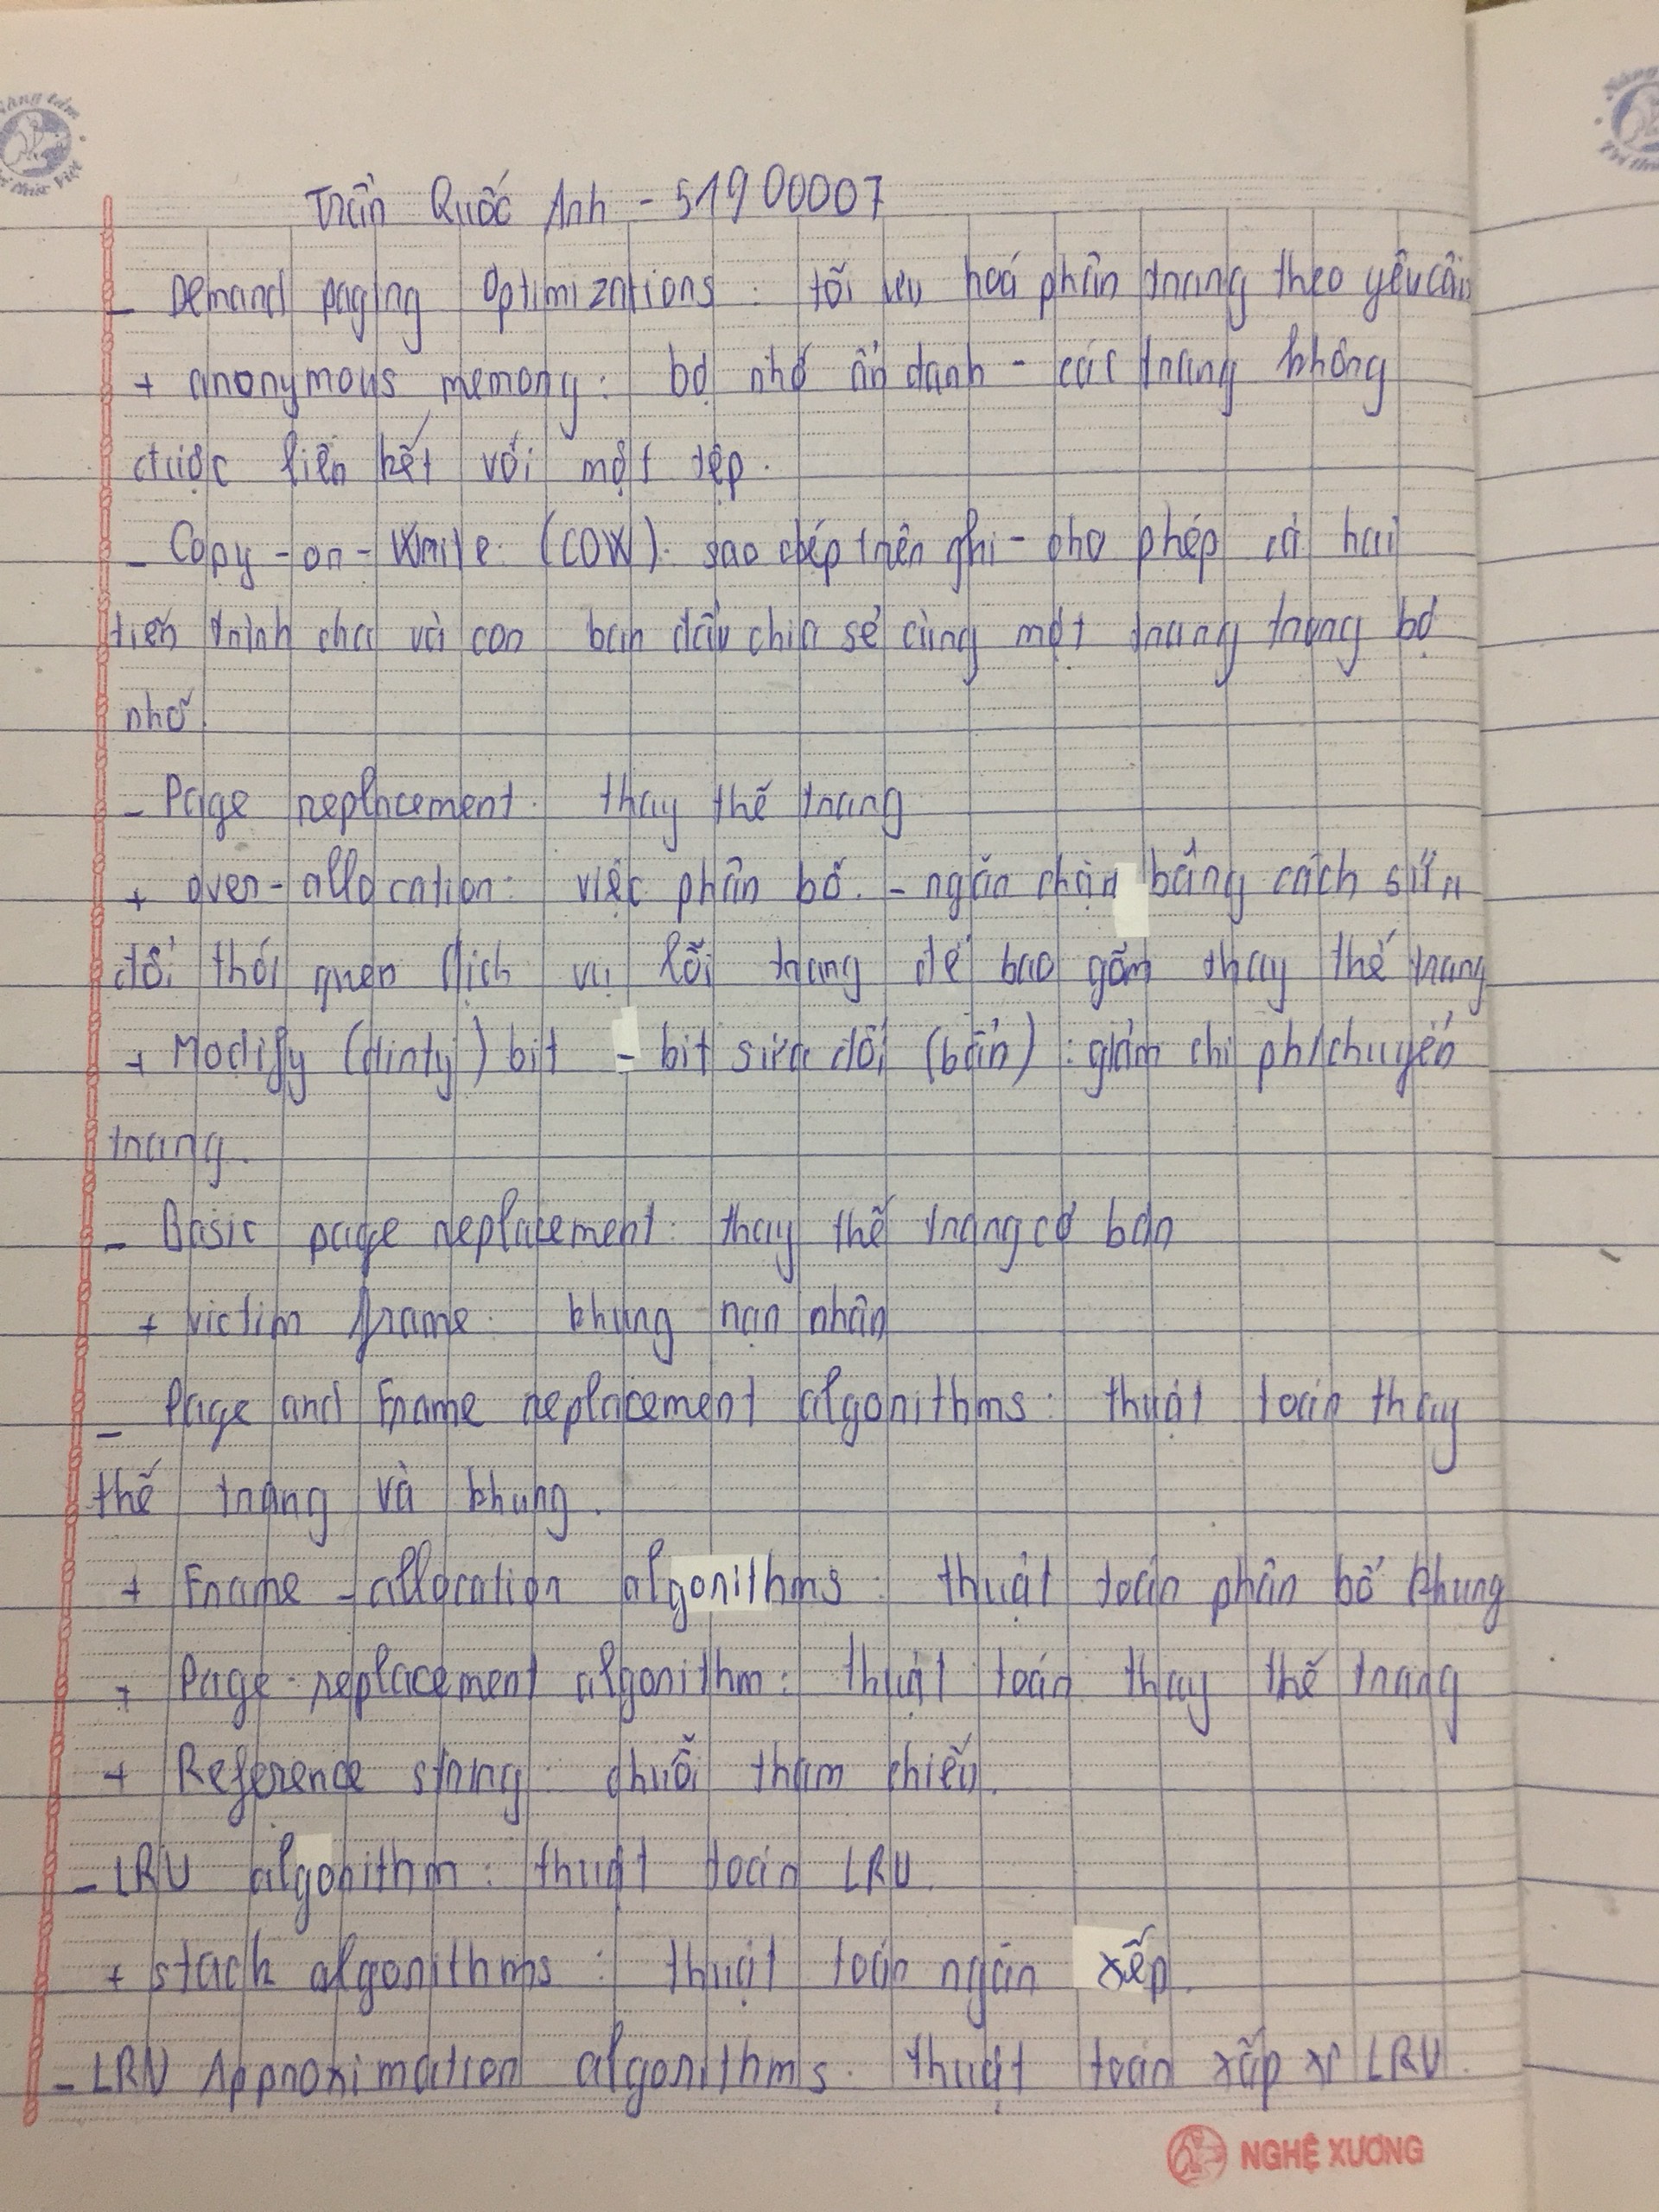 Trần Quốc Anh - 51900007
- Demand paging Optimizations: tối ưu hoá phân trang theo yêu cầu
+ anonymous memory: bộ nhớ ẩn danh - các trang không
được liên kết với một tệp.
- Copy-on-Write (COW): sao chép trên ghi - cho phép cả hai
tiến trình cha và con ban đầu chia sẻ cùng một trang trong bộ
nhớ.
- Page replacement: thay thế trang
+ over-allocation: việc phân bổ. - ngăn chặn bằng cách sửa
đổi thói quen dịch vụ lỗi trang để bao gồm thay thế trang
+ Modify (dirty) bit - bit sửa đổi (bẩn): giảm chi phí chuyển
trang.
- Basic page replacement: thay thế trang cơ bản
+ victim frame: khung nạn nhân
- Page and Frame replacement algorithms: thuật toán thay
thế trang và khung.
+ Frame-allocation algorithms: thuật toán phân bổ khung
+ Page-replacement algorithm: thuật toán thay thế trang
+ Reference string: chuỗi tham chiếu.
- LRU algorithm: thuật toán LRU.
+ stack algorithms: thuật toán ngăn xếp.
- LRU Approximation algorithms: thuật toán xấp xỉ LRU.
NGHỆ XƯƠNG